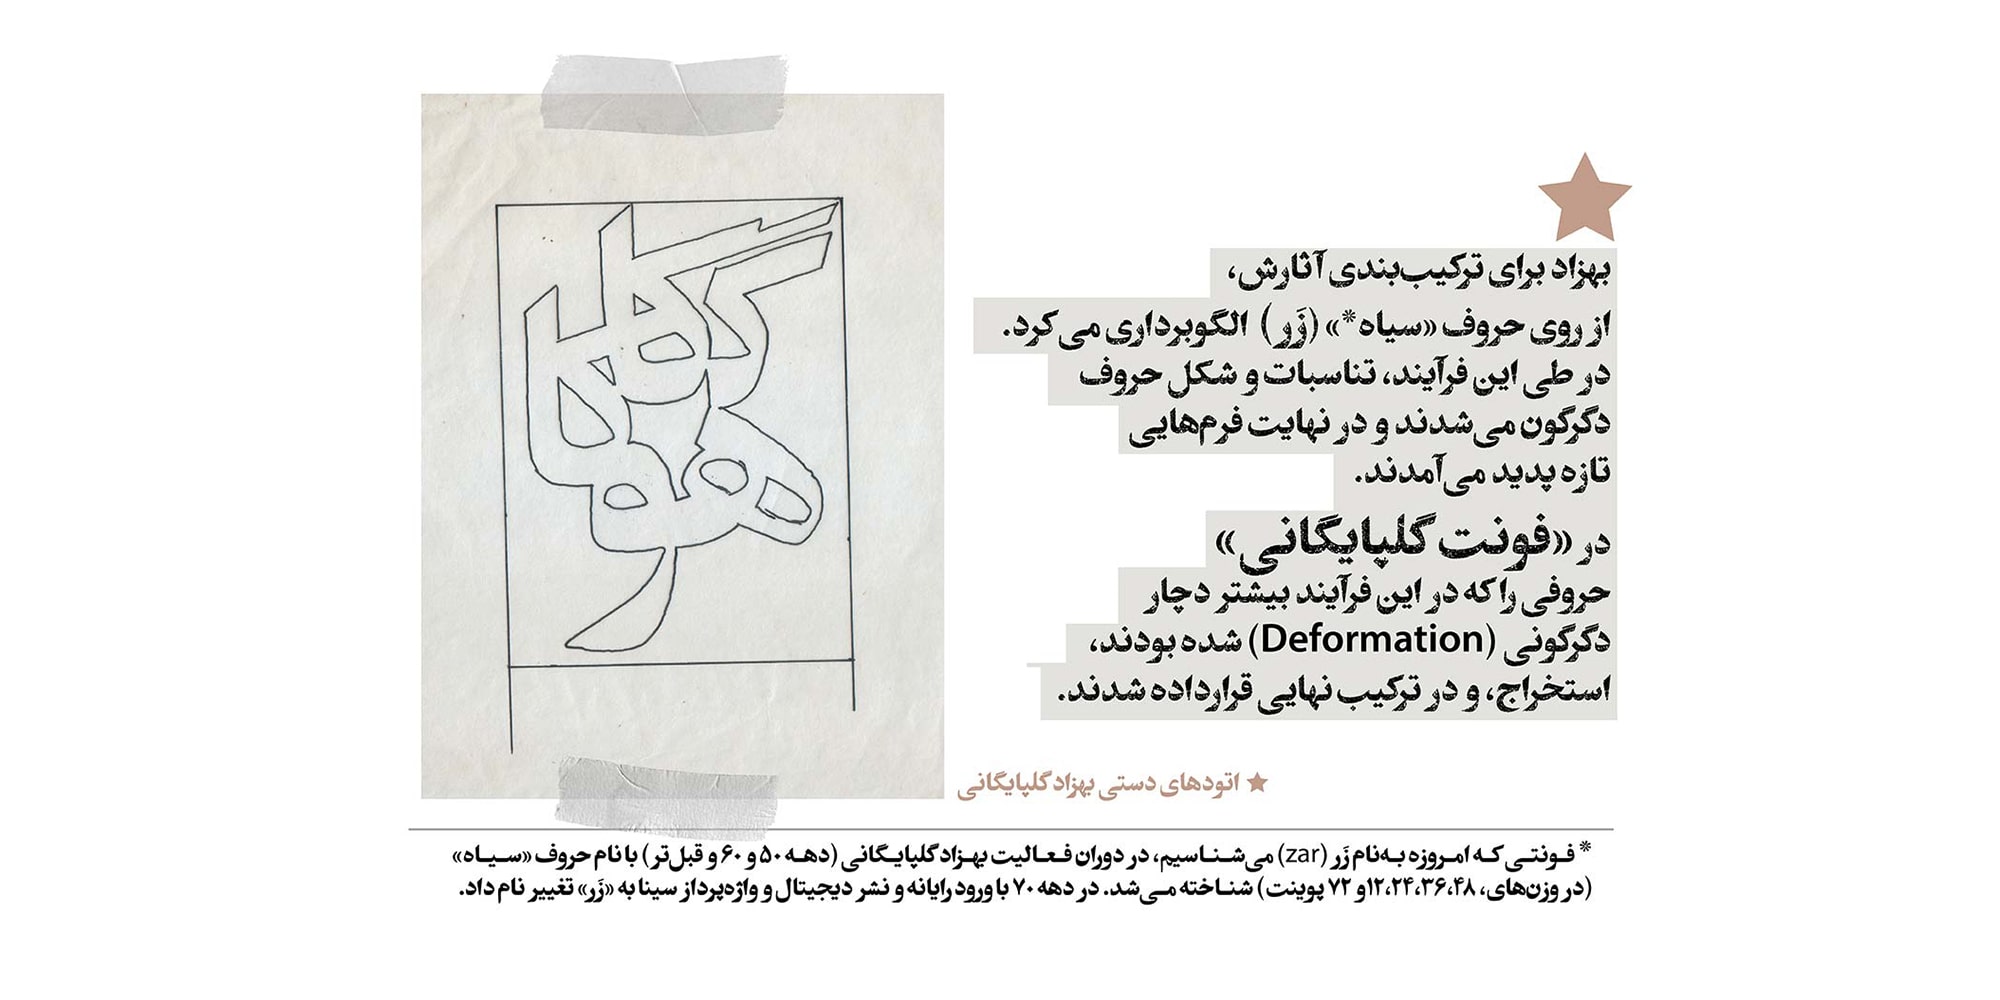 بهزاد برای ترکیب‌بندی آثارش،
از روی حروف «سیاه*» (زَر) الگوبرداری می‌کرد.
در طی این فرآیند، تناسبات و شکل حروف
دگرگون می‌شدند و در نهایت فرم‌هایی
تازه پدید می‌آمدند.
در «فونت گلپایگانی»
حروفی را که در این فرآیند بیشتر دچار
دگرگونی (Deformation) شده بودند،
استخراج، و در ترکیب نهایی قرارداده شدند.
★ اتودهای دستی بهزاد گلپایگانی
* فونتی که امروزه به‌نام زَر (zar) می‌شناسیم، در دوران فعالیت بهزاد گلپایگانی (دهه ۵۰ و ۶۰ و قبل‌تر) با نام حروف «سیاه»
(در وزن‌های، ۱۲،۲۴،۳۶،۴۸ و ۷۲ پوینت) شناخته می‌شد. در دهه ۷۰ با ورود رایانه و نشر دیجیتال و واژه‌پرداز سینا به «زَر» تغییر نام داد.